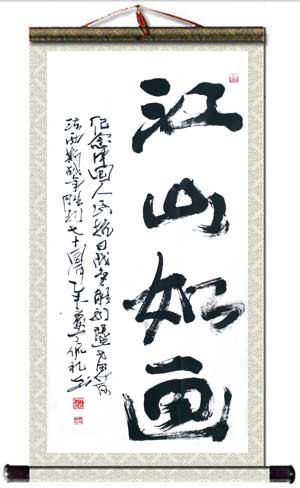 江山如画
纪念中国人民抗日战争胜利暨世界反
法西斯战争胜利七十周年乙未夏佩礼